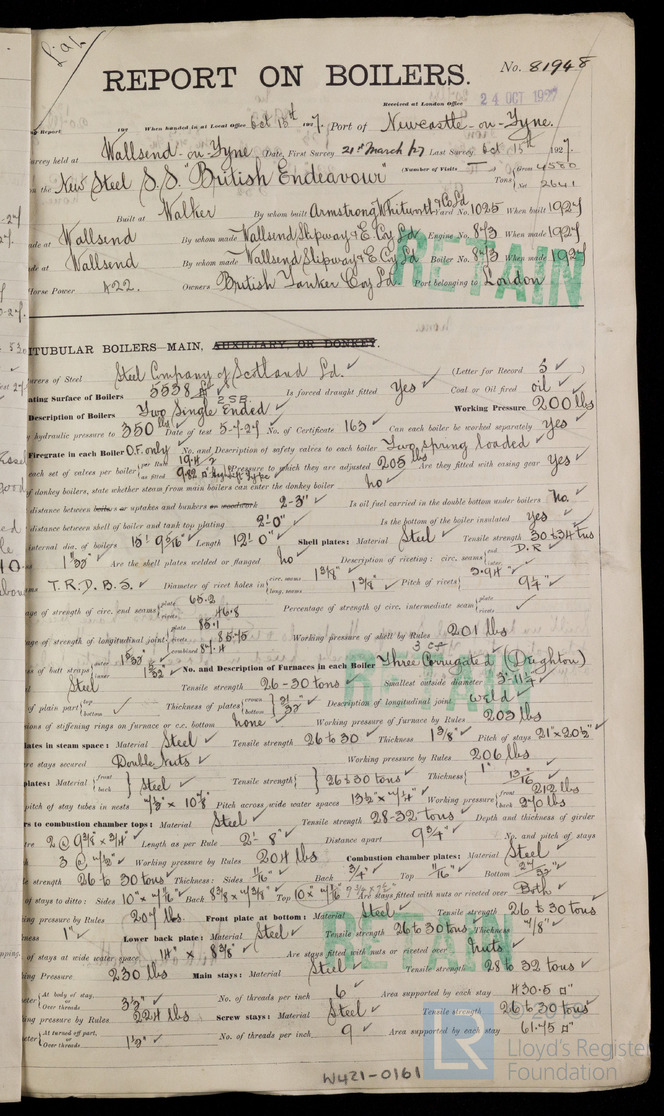 REPORT ON BOILERS.
No. 81948
Received at London Office 24 OCT 1927
When handed in at Local Office Oct 15th 1927. Port of Newcastle-on-Tyne.
Survey held at Wallsend-on-Tyne Date, First Survey 21st March 27 Last Survey Oct 15th 1927.
on the New Steel S.S. "British Endeavour" (Number of Visits ) Tons Gross 4580 Net 2641
Built at Walker By whom built Armstrong Whitworth & Co Ld Yard No. 1025 When built 1927
made at Wallsend By whom made Wallsend Slipway & E. Coy Ld Engine No. 873 When made 1927
made at Wallsend By whom made Wallsend Slipway & E. Coy Ld Boiler No. 873 When made 1927
Horse Power 422. Owners British Tanker Coy Ld Port belonging to London
RETAIN
ITUBULAR BOILERS MAIN, AUXILIARY OR DONKEY.
urers of Steel Steel Company of Scotland Ld. (Letter for Record S)
ating Surface of Boilers 5538 Is forced draught fitted Yes Coal or Oil fired oil
Description of Boilers Two Single Ended Working Pressure 200 lbs
y hydraulic pressure to 350 lbs Date of test 5-7-27 No. of Certificate 163 Can each boiler be worked separately Yes
Firegrate in each Boiler O.F. only No. and Description of safety valves to each boiler Two spring loaded
each set of valves per boiler per Rule 19.4 as fitted Pressure to which they are adjusted 205 lbs Are they fitted with easing gear Yes
of donkey boilers, state whether steam from main boilers can enter the donkey boiler no
distance between boilers or uptakes and bunkers or woodwork 2'-3" Is oil fuel carried in the double bottom under boilers No.
distance between shell of boiler and tank top plating 2'-0" Is the bottom of the boiler insulated yes
internal dia. of boilers 15' 9 5/16" Length 12' 0" Shell plates: Material Steel Tensile strength 30 to 34 tons
Are the shell plates welded or flanged no Description of riveting: circ. seams end D.R
T.R.D.B.S. Diameter of rivet holes in circ. seams 1 3/8" long. seams 1 3/8" Pitch of rivets 3.94" 9 1/4"
age of strength of circ. end seams plate 65.2 rivets 46.8 Percentage of strength of circ. intermediate seam plate rivets
age of strength of longitudinal joint plate 85.1 rivets 85.75 combined 87.4 Working pressure of shell by Rules 201 lbs
of butt straps outer inner No. and Description of Furnaces in each Boiler Three Corrugated (Deighton)
Steel Tensile strength 26-30 tons Smallest outside diameter
of plain part top bottom Thickness of plates crown bottom Description of longitudinal joint weld
ions of stiffening rings on furnace or c.c. bottom none Working pressure of furnace by Rules 203 lbs
lates in steam space: Material Steel Tensile strength 26 to 30 Thickness 1 3/8" Pitch of stays 21" x 20½"
re stays secured Double Nuts Working pressure by Rules 206 lbs
plates: Material front back Steel Tensile strength 26 to 30 tons Thickness 1" 13/16
pitch of stay tubes in nests 7½" x 10⅞" Pitch across wide water spaces 13½" x 7¼" Working pressure front 212 lbs back 270 lbs
rs to combustion chamber tops: Material Steel Tensile strength 28-32 tons Depth and thickness of girder
tre 2 @ 9⅜" x 3/4" Length as per Rule 2'-8" Distance apart 9¾" No. and pitch of stays
3 @ 7½" Working pressure by Rules 204 lbs Combustion chamber plates: Material Steel
le strength 26 to 30 tons Thickness: Sides 11/16 Back 3/4" Top 11/16" Bottom 27/32"
of stays to ditto: Sides Back Top Are stays fitted with nuts or riveted over Both
ing pressure by Rules 207 lbs. Front plate at bottom: Material Steel Tensile strength 26 to 30 tons
ness 1" Lower back plate: Material Steel Tensile strength 26 to 30 tons Thickness 7/8"
of stays at wide water space 14" x 8⅜" Are stays fitted with nuts or riveted over nuts
ing Pressure 230 lbs Main stays: Material Steel Tensile strength 28 to 32 tons
eter At body of stay, or Over threads No. of threads per inch 6 Area supported by each stay 430.5 □"
ing pressure by Rules 224 lbs Screw stays: Material Steel Tensile strength 26 to 30 tons
eter At turned off part, or Over threads No. of threads per inch 9 Area supported by each stay 61.75 □"
RETAIN
RETAIN
W421-0161
© 2019
LR
Lloyd's Register
Foundation